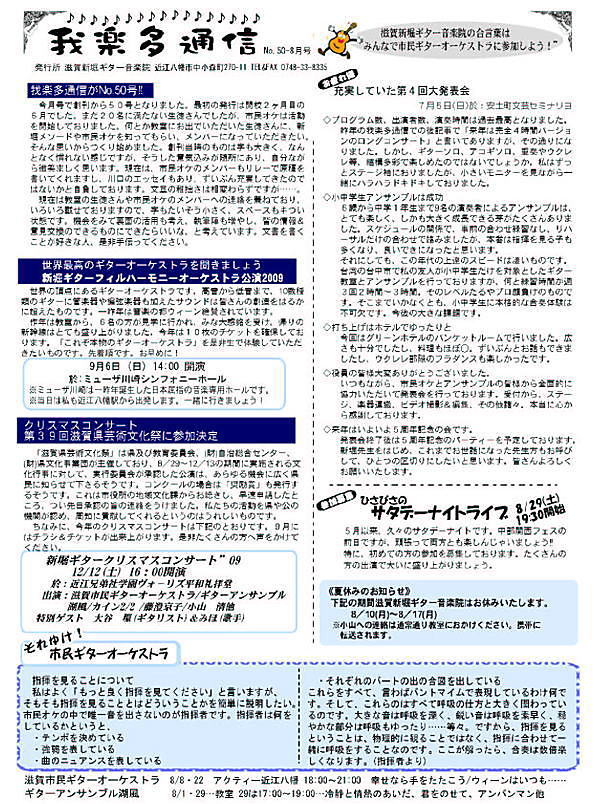 我楽多通信 No.50-8月号
発行所 滋賀新堀ギター音楽院 近江八幡市中小森町270-11 TEL&FAX 0748-33-8335
滋賀新堀ギター音楽院の合言葉は
“みんなで市民ギターオーケストラに参加しよう！”
我楽多通信がNo.50号!!
今月号で創刊から５０号となりました。最初の発行は開校２ヶ月目の
６月でした。まだ２０名に満たない生徒さんでしたが、市民オケは活動
を開始しておりました。何とか教室にお出でいただいた生徒さんに、新
堀メソードや市民オケを知ってもらい、メンバーになっていただきたい。
そんな思いからつくり始めました。創刊当時のものは字も大きく、なん
となく慣れない感じですが、そうした意気込みが随所にあり、自分なが
ら微笑ましく思います。現在は、市民オケのメンバーもリレーで原稿を
書いてくれますし、川口のエッセイもあり、ずいぶん充実してきたので
はないかと自負しております。文章の稚拙さは相変わらずですが……。
現在は教室の生徒さんや市民オケのメンバーへの連絡を兼ねており、
いろいろ載せておりますので、字もだいぶ小さく、スペースももうい
状態です。機会をみて裏面の活用も考え、執筆陣も増やし、皆の情報&
意見交換のできるものにできたらいいな、と考えています。文書を書く
ことが好きな人、是非手伝ってください。
世界最高のギターオーケストラを聞きましょう
新堀ギターフィルハーモニーオーケストラ公演2009
世界の頂点にあるギターオーケストラです。高音から低音まで、１０数種
類のギターに管楽器や編弦楽器も加えたサウンドは皆さんの創造をはるか
に超えたものです。一昨年は音楽の都ウィーン絶賛されています。
昨年は教室から、６名の方が見学に行かれ、みな大感銘を受け、帰りの
新幹線はとても盛り上がりました。今年は１０枚のチケットを確保してお
ります。「これぞ本物のギターオーケストラ」を是非生で体験していただ
きたいものです。先着順です。お早めに！
9月6日（日）14:00 開演
於：ミューザ川崎シンフォニーホール
※ミューザ川崎は一昨年誕生した日本屈指の音楽専用ホールです。
※当日は私も近江八幡駅から出発します。一緒に行きましょう！
クリスマスコンサート
第３９回滋賀県芸術文化祭に参加決定
「滋賀県芸術文化祭」は県及び教育委員会、(財)自治総合センター、
(財)県文化事業団が主催しており、8/29〜12/13の期間に実施される文
化行事に対して、実行委員会が承認した公演は、あらゆる機会に広く県
民に知らせて下さるそうです。コンクールの場合は「奨励賞」も発行す
るそうです。これは市役所の地域文化課からお話きし、早速申請したと
ころ、つい先日承認の旨の連絡をうけました。私たちの活動を県や公の
機関が認め、周知に貢献してくれるというのはうれしいものです。
ちなみに、今年のクリスマスコンサートは下記のとおりです。９月に
はチラシ&チケットが出来上がります。是非たくさんの方へ声をかけて
ください。
新堀ギタークリスマスコンサート”09
12/12(土) 16：00開演
於：近江兄弟社学園ヴォーリズ平和礼拝堂
出演：滋賀市民ギターオーケストラ/ギターアンサンブル
湖風/カイン2/2 /藤澄京子/小山 清他
特別ゲスト 大谷 環（ギタリスト）&みほ(歌手)
充実していた第４回大発表会
７月５日(日)於：安土町文芸セミナリヨ
◇プログラム数、出演者数、演奏時間は過去最高となりました。
昨年の我楽多通信での後記事で「来年は完全４時間バージョ
ンのロングコンサート」と書いてありますが、その通りにな
りました。しかし、ギターソロ、アコギソロ、重奏やウクレ
レ等、結構多彩で楽しめたのではないでしょうか。私はずっ
とステージ袖におりましたが、小さいモニターを見ながら一
緒にハラハラドキドキしておりました。
◇小中学生アンサンブルは成功
６歳から中学１年生まで9名の演奏者によるアンサンブルは、
とても楽しく、しかも大きく成長できる芽がたくさんありま
した。スケジュールの関係で、事前の合わせ練習なし、リハ
ーサルだけの合わせで臨みましたが、本番は指揮を見る子も
多くなり、良いできになったと思います。
それにしても、この年代の上達のスピードは凄いものです。
台湾の台中市で私の友人が小中学生だけを対象としたギター
教室とアンサンブルを行っておりますが、何と練習時間が週
３回２時間〜３時間、そのレベルたるやプロ顔負けのもので
す。そこまでいかなくとも、小中学生に本格的な合奏体験は
不可欠です。今後の大きな課題です。
◇打ち上げはホテルでゆったりと
今回はグリーンホテルのバンケットルームで行いました。広
さも十分でしたし、料理もほぼ◎。ずいぶんとお話もできま
したし、ウクレレ部隊のフラダンスも楽しかったです。
◇役員の皆様大変ありがとうございました。
いつもながら、市民オケとアンサンブルの皆様から全面的に
協力いただいて発表会を行っております。受付から、ステー
ジ、楽器運搬、ビデオ撮影&編集、その他諸々、本当に心か
ら感謝しております。
◇来年はいよいよ５周年記念の会です。
発表会終了後は５周年記念のパーティーを予定しております。
新堀先生をはじめ、これまでお世話になった先生方もお呼び
して、ひとつの区切りにしたいと思います。皆さんよろしく
お願いいたします。
ひさびさの
サタデーナイトライブ 8/29(土)
19:30開始
５月以来、久々のサタデーナイトです。中部関西フェスの
前日ですが、頑張って両方とも楽しんじゃいましょう!!
特に、初めての方の参加を募集しております。たくさんの
方の出演で大いに盛り上がりましょう。
《夏休みのお知らせ》
下記の期間滋賀新堀ギター音楽院はお休みいたします。
8/10(月)〜8/17(月)
※小山への連絡は通常通り教室におかけください。携帯に
転送されます。
それゆけ！
市民ギターオーケストラ
指揮を見ることについて
私はよく「もっと良く指揮を見てください」と言いますが、
そもそも指揮を見ることとはどういうことかを簡単に説明したい。
市民オケの中で唯一音を出さないのが指揮者です。指揮者は何を
しているかというと、
・テンポを決めている
・強弱を表している
・曲のニュアンスを表している
・それぞれのパートの出の合図を出している
これらをすべて、言わばパントマイムで表現しているわけ何で
す。そして、これらのはすべて呼吸の仕方と大きく関わってい
るのです。大きな音は呼吸を深く、鋭い音は呼吸を素早く、穏
やかな部分は呼吸もゆったり……等々。ですから、指揮を見る
ということは、物理的に観ることではなく、指揮に合わせて一
緒に呼吸をすることなのです。ここが解ったら、合奏は数倍楽
しくなります。（指揮者より）
滋賀市民ギターオーケストラ 8/8・22 アクティー近江八幡 18:00〜21:00 幸せなら手をたたこう/ウィーンはいつも……
ギターアンサンブル湖風 8/1・29…教室 29は17:00〜19:00…冷静と情熱のあいだ、君をのせて、アンパンマン他